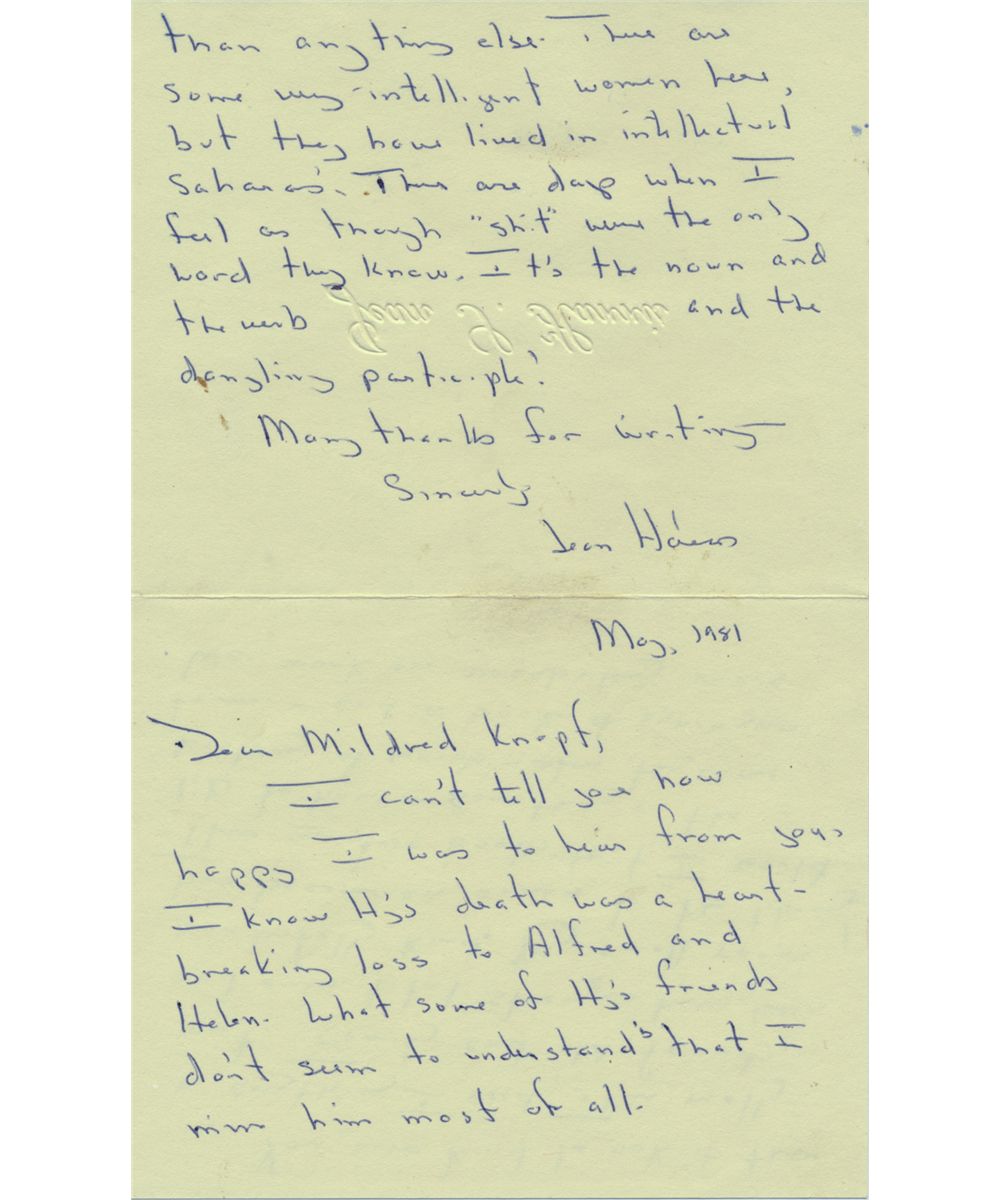 than anything else. There are
some very intelligent women here,
but they have lived in intellectual
Saharas. There are days when I
feel as though "shit" were the only
word they know. It's the noun and
the verb and the
Jean S. Harris
dangling participle!
Many thanks for writing
Sincerely
Jean Harris
May, 1981
Dear Mildred Knopf,
I can't tell you how
happy I was to hear from you.
I know Hy's death was a heart-
breaking loss to Alfred and
Helen. What some of Hy's friends
don't seem to understand's that I
miss him most of all.